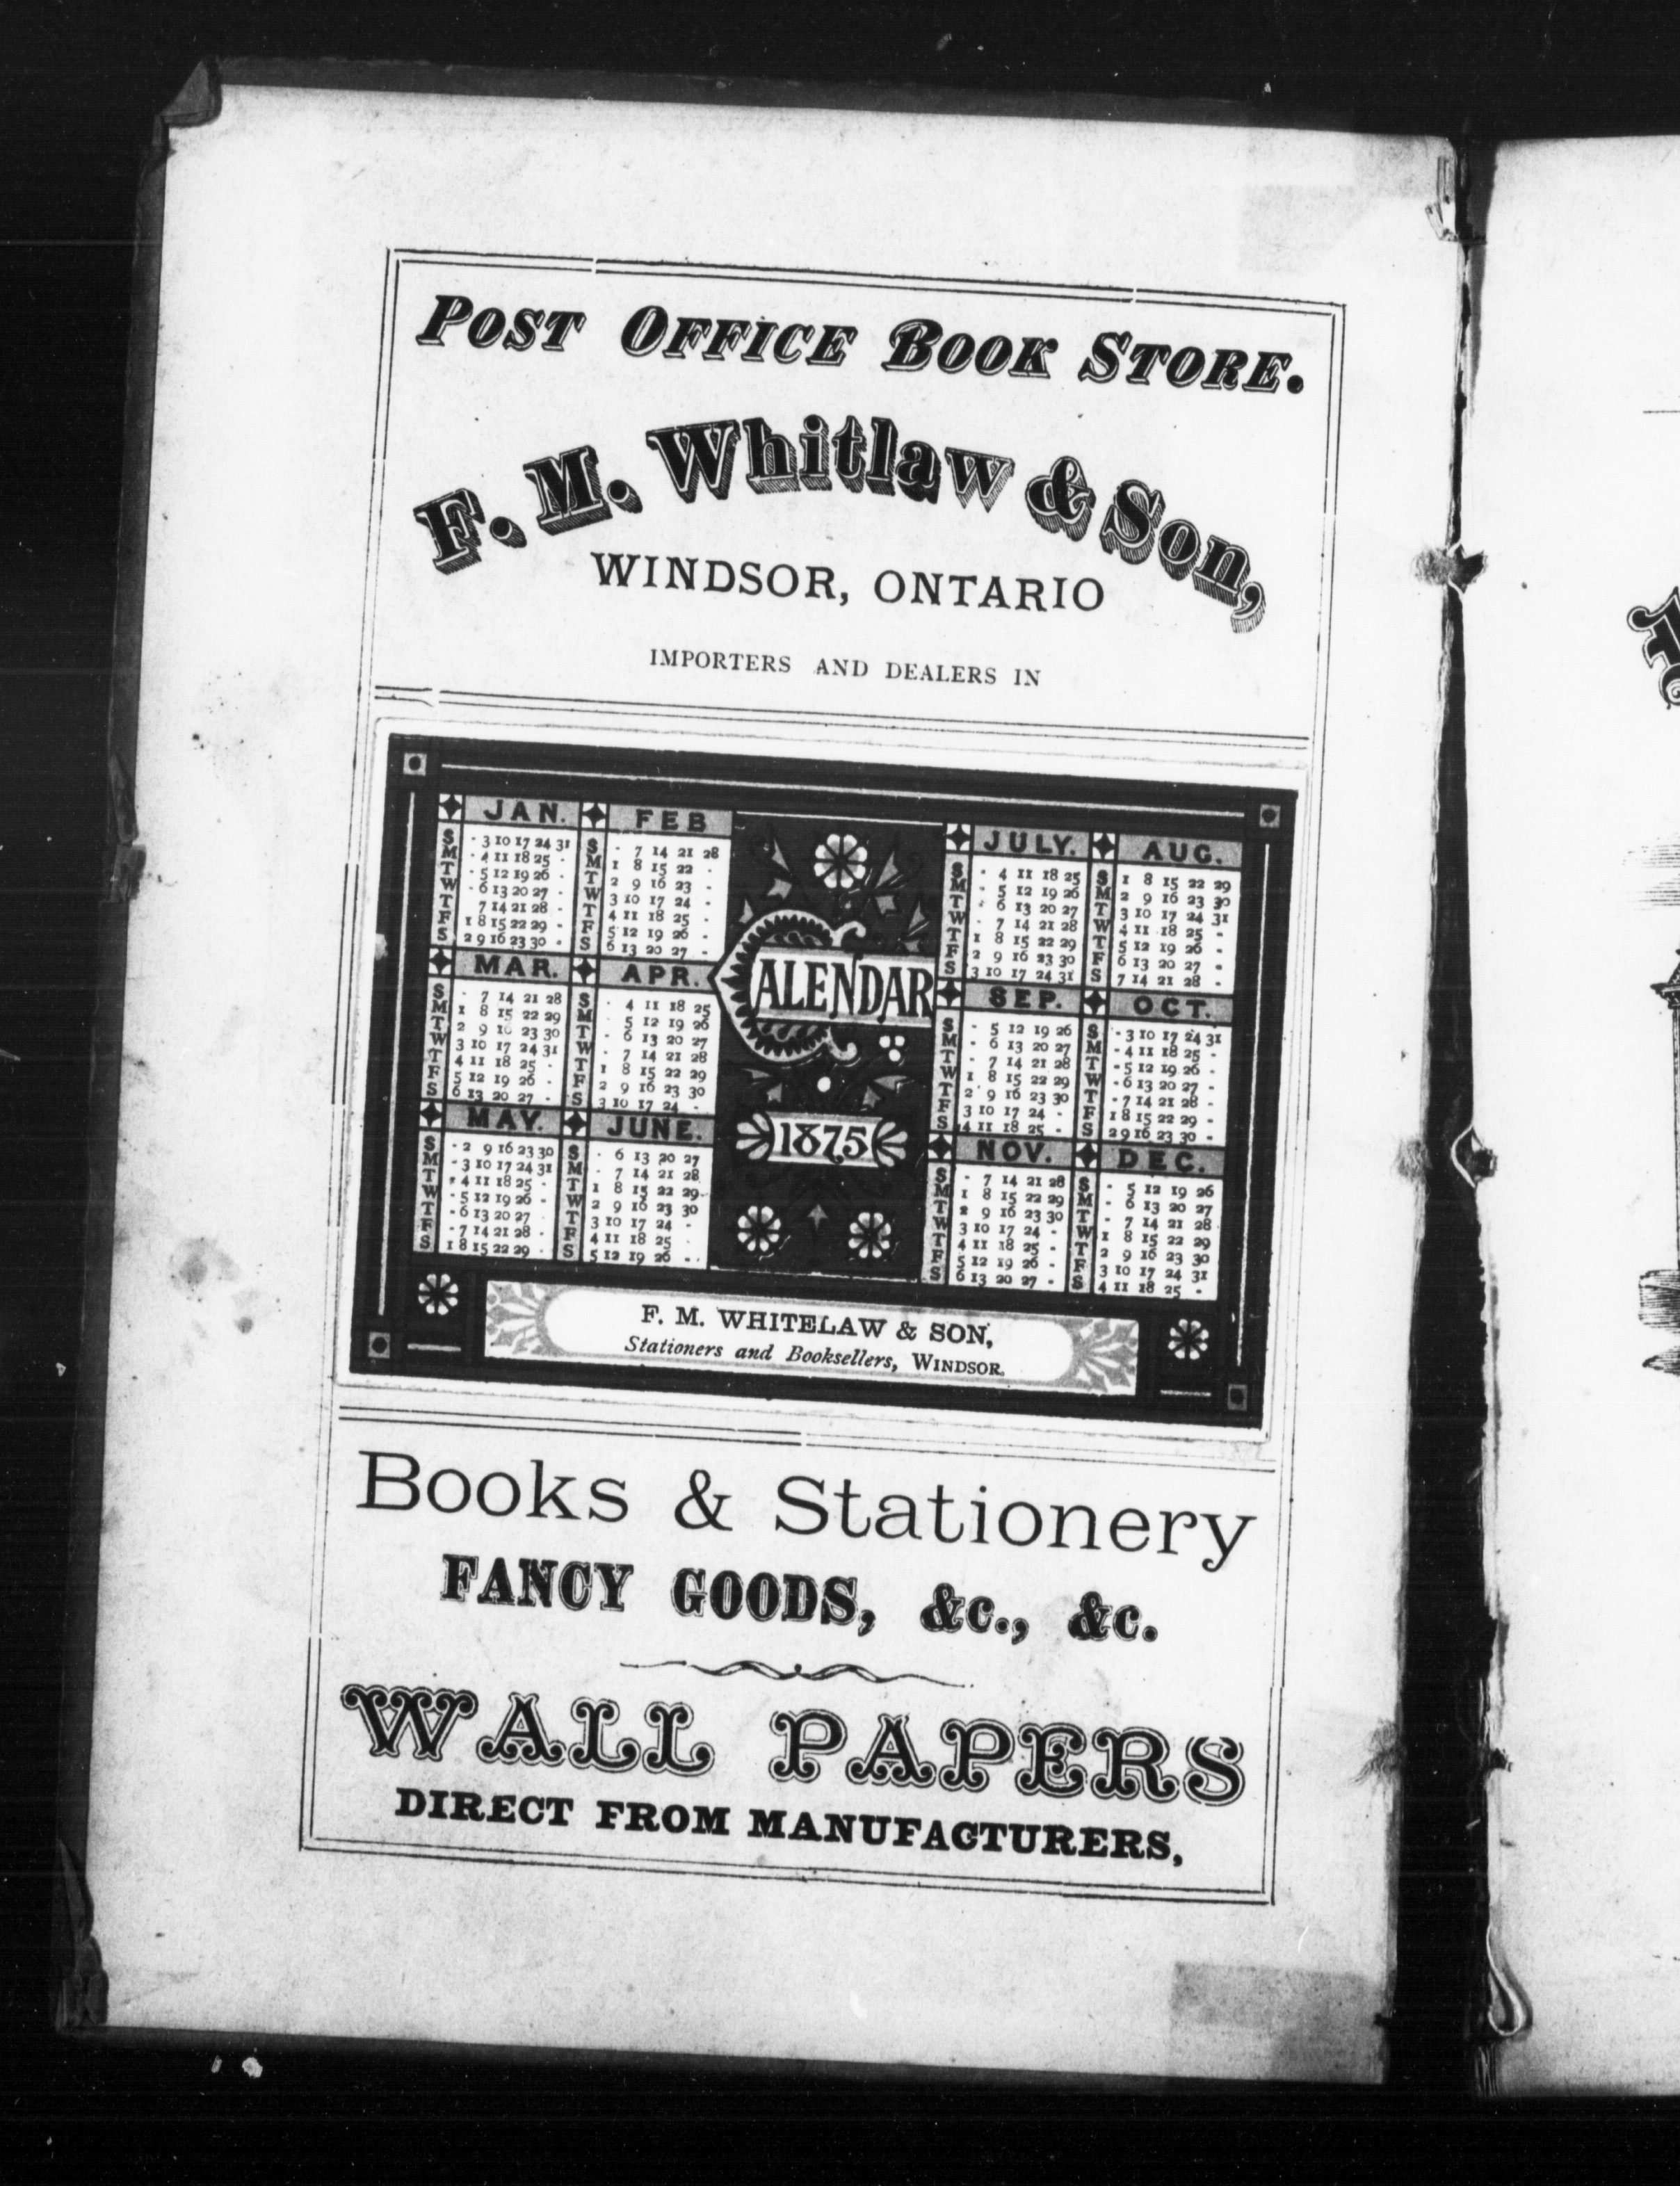 POST OFFICE BOOK STORE.
F. M. Whitlaw & Son,
WINDSOR, ONTARIO
IMPORTERS AND DEALERS IN
JAN.
S - 3 10 17 24 31
M - 4 11 18 25 -
T - 5 12 19 26 -
W - 6 13 20 27 -
T 7 14 21 28 -
F 1 8 15 22 29 -
S 2 9 16 23 30 -
FEB
S - 7 14 21 28
M 1 8 15 22 -
T 2 9 16 23 -
W 3 10 17 24 -
T 4 11 18 25 -
F 5 12 19 26 -
S 6 13 20 27 -
MAR.
S - 7 14 21 28
M 1 8 15 22 29
T 2 9 16 23 30
W 3 10 17 24 31
T 4 11 18 25 -
F 5 12 19 26 -
S 6 13 20 27 -
APR.
S - 4 11 18 25
M - 5 12 19 26
T - 6 13 20 27
W - 7 14 21 28
T 1 8 15 22 29
F 2 9 16 23 30
S 3 10 17 24 -
MAY.
S - 2 9 16 23 30
M - 3 10 17 24 31
T - 4 11 18 25 -
W - 5 12 19 26 -
T - 6 13 20 27 -
F - 7 14 21 28 -
S 1 8 15 22 29 -
JUNE.
S - 6 13 20 27
M - 7 14 21 28
T 1 8 15 22 29
W 2 9 16 23 30
T 3 10 17 24 -
F 4 11 18 25 -
S 5 12 19 26 -
CALENDAR
1875
JULY.
S - 4 11 18 25
M - 5 12 19 26
T - 6 13 20 27
W - 7 14 21 28
T 1 8 15 22 29
F 2 9 16 23 30
S 3 10 17 24 31
AUG.
S 1 8 15 22 29
M 2 9 16 23 30
T 3 10 17 24 31
W 4 11 18 25 -
T 5 12 19 26 -
F 6 13 20 27 -
S 7 14 21 28 -
SEP.
S - 5 12 19 26
M - 6 13 20 27
T - 7 14 21 28
W 1 8 15 22 29
T 2 9 16 23 30
F 3 10 17 24 -
S 4 11 18 25 -
OCT.
S - 3 10 17 24 31
M - 4 11 18 25 -
T - 5 12 19 26 -
W - 6 13 20 27 -
T - 7 14 21 28 -
F 1 8 15 22 29 -
S 2 9 16 23 30 -
NOV.
S - 7 14 21 28
M 1 8 15 22 29
T 2 9 16 23 30
W 3 10 17 24 -
T 4 11 18 25 -
F 5 12 19 26 -
S 6 13 20 27 -
DEC.
S - 5 12 19 26
M - 6 13 20 27
T - 7 14 21 28
W 1 8 15 22 29
T 2 9 16 23 30
F 3 10 17 24 31
S 4 11 18 25 -
F. M. WHITELAW & SON,
Stationers and Booksellers, WINDSOR.
Books & Stationery
FANCY GOODS, &c., &c.
WALL PAPERS
DIRECT FROM MANUFACTURERS,